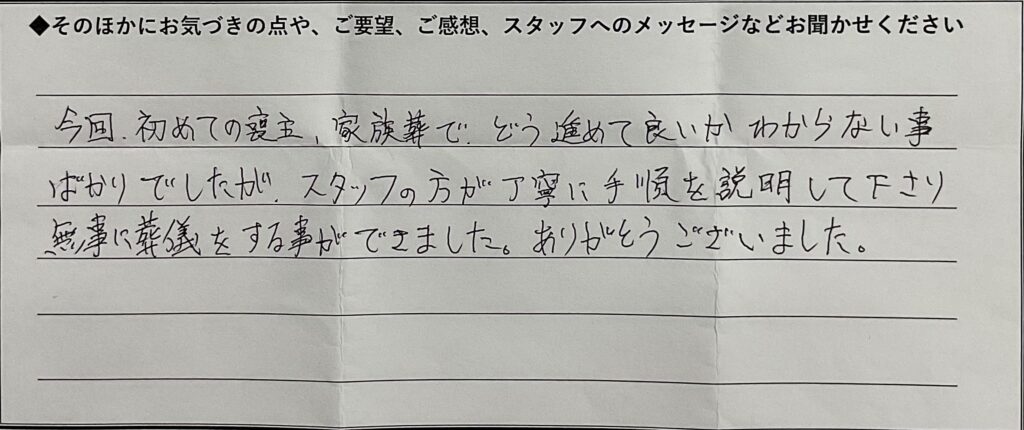 ◆そのほかにお気づきの点や、ご要望、ご感想、スタッフへのメッセージなどお聞かせください
今回、初めての喪主、家族葬で、どう進めて良いかわからない事
ばかりでしたが、スタッフの方が丁寧に手順を説明して下さり
無事に葬儀をする事ができました。ありがとうございました。